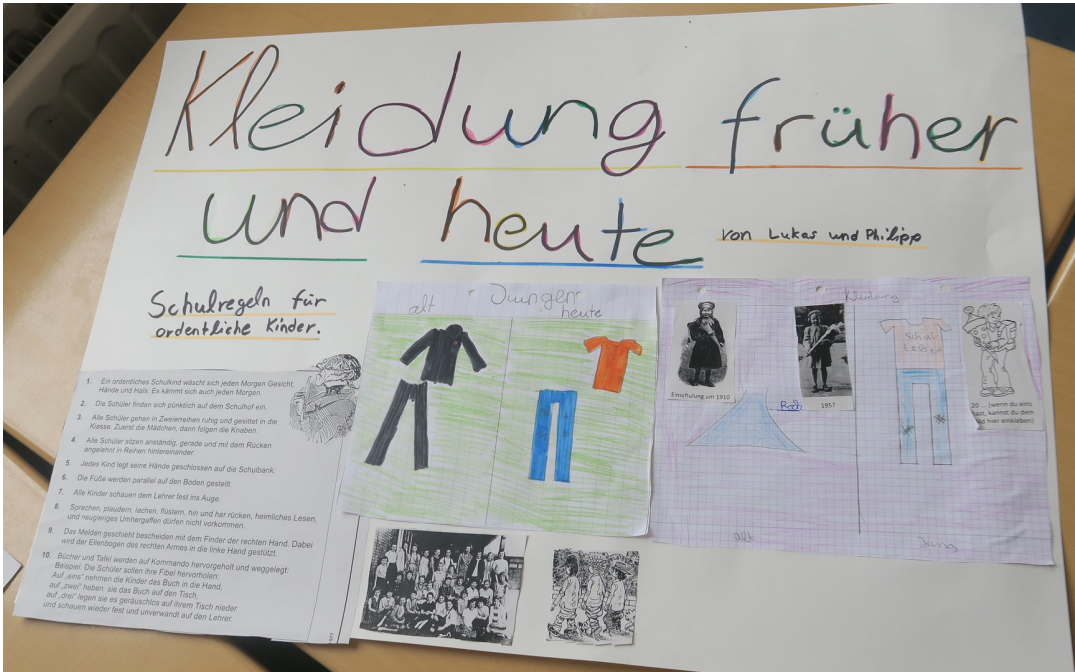 Kleidung früher
und heute
von Lukas und Philipp
Schulregeln für
ordentliche Kinder.
1. Ein ordentliches Schulkind wäscht sich jeden Morgen Gesicht,
Hände und Hals. Es kämmt sich auch jeden Morgen.
2. Die Schüler finden sich pünktlich auf dem Schulhof ein.
3. Alle Schüler gehen in Zweierreihen ruhig und gesittet in die
Klasse. Zuerst die Mädchen, dann folgen die Knaben.
4. Alle Schüler sitzen anständig, gerade und mit dem Rücken
angelehnt in Reihen hintereinander.
5. Jedes Kind legt seine Hände geschlossen auf die Schulbank.
6. Die Füße werden parallel auf den Boden gestellt.
7. Alle Kinder schauen dem Lehrer fest ins Auge.
8. Sprechen, plaudern, lachen, flüstern, hin und her rücken, heimliches Lesen,
und neugieriges Umhergaffen dürfen nicht vorkommen.
9. Das Melden geschieht bescheiden mit dem Finder der rechten Hand. Dabei
wird der Ellenbogen des rechten Armes in die linke Hand gestützt.
10. Bücher und Tafel werden auf Kommando hervorgeholt und weggelegt:
Beispiel: Die Schüler sollen ihre Fibel hervorholen:
Auf „eins" nehmen die Kinder das Buch in die Hand,
auf „zwei" heben sie das Buch auf den Tisch,
auf „drei" legen sie es geräuschlos auf ihrem Tisch nieder
und schauen wieder fest und unverwandt auf den Lehrer.
alt Jungen heute
Kleidung
Einschulung um 1910
Rock
1957
20 ... (wenn du eins
hast, kannst du dein
hier einkleben)
alt
Jung